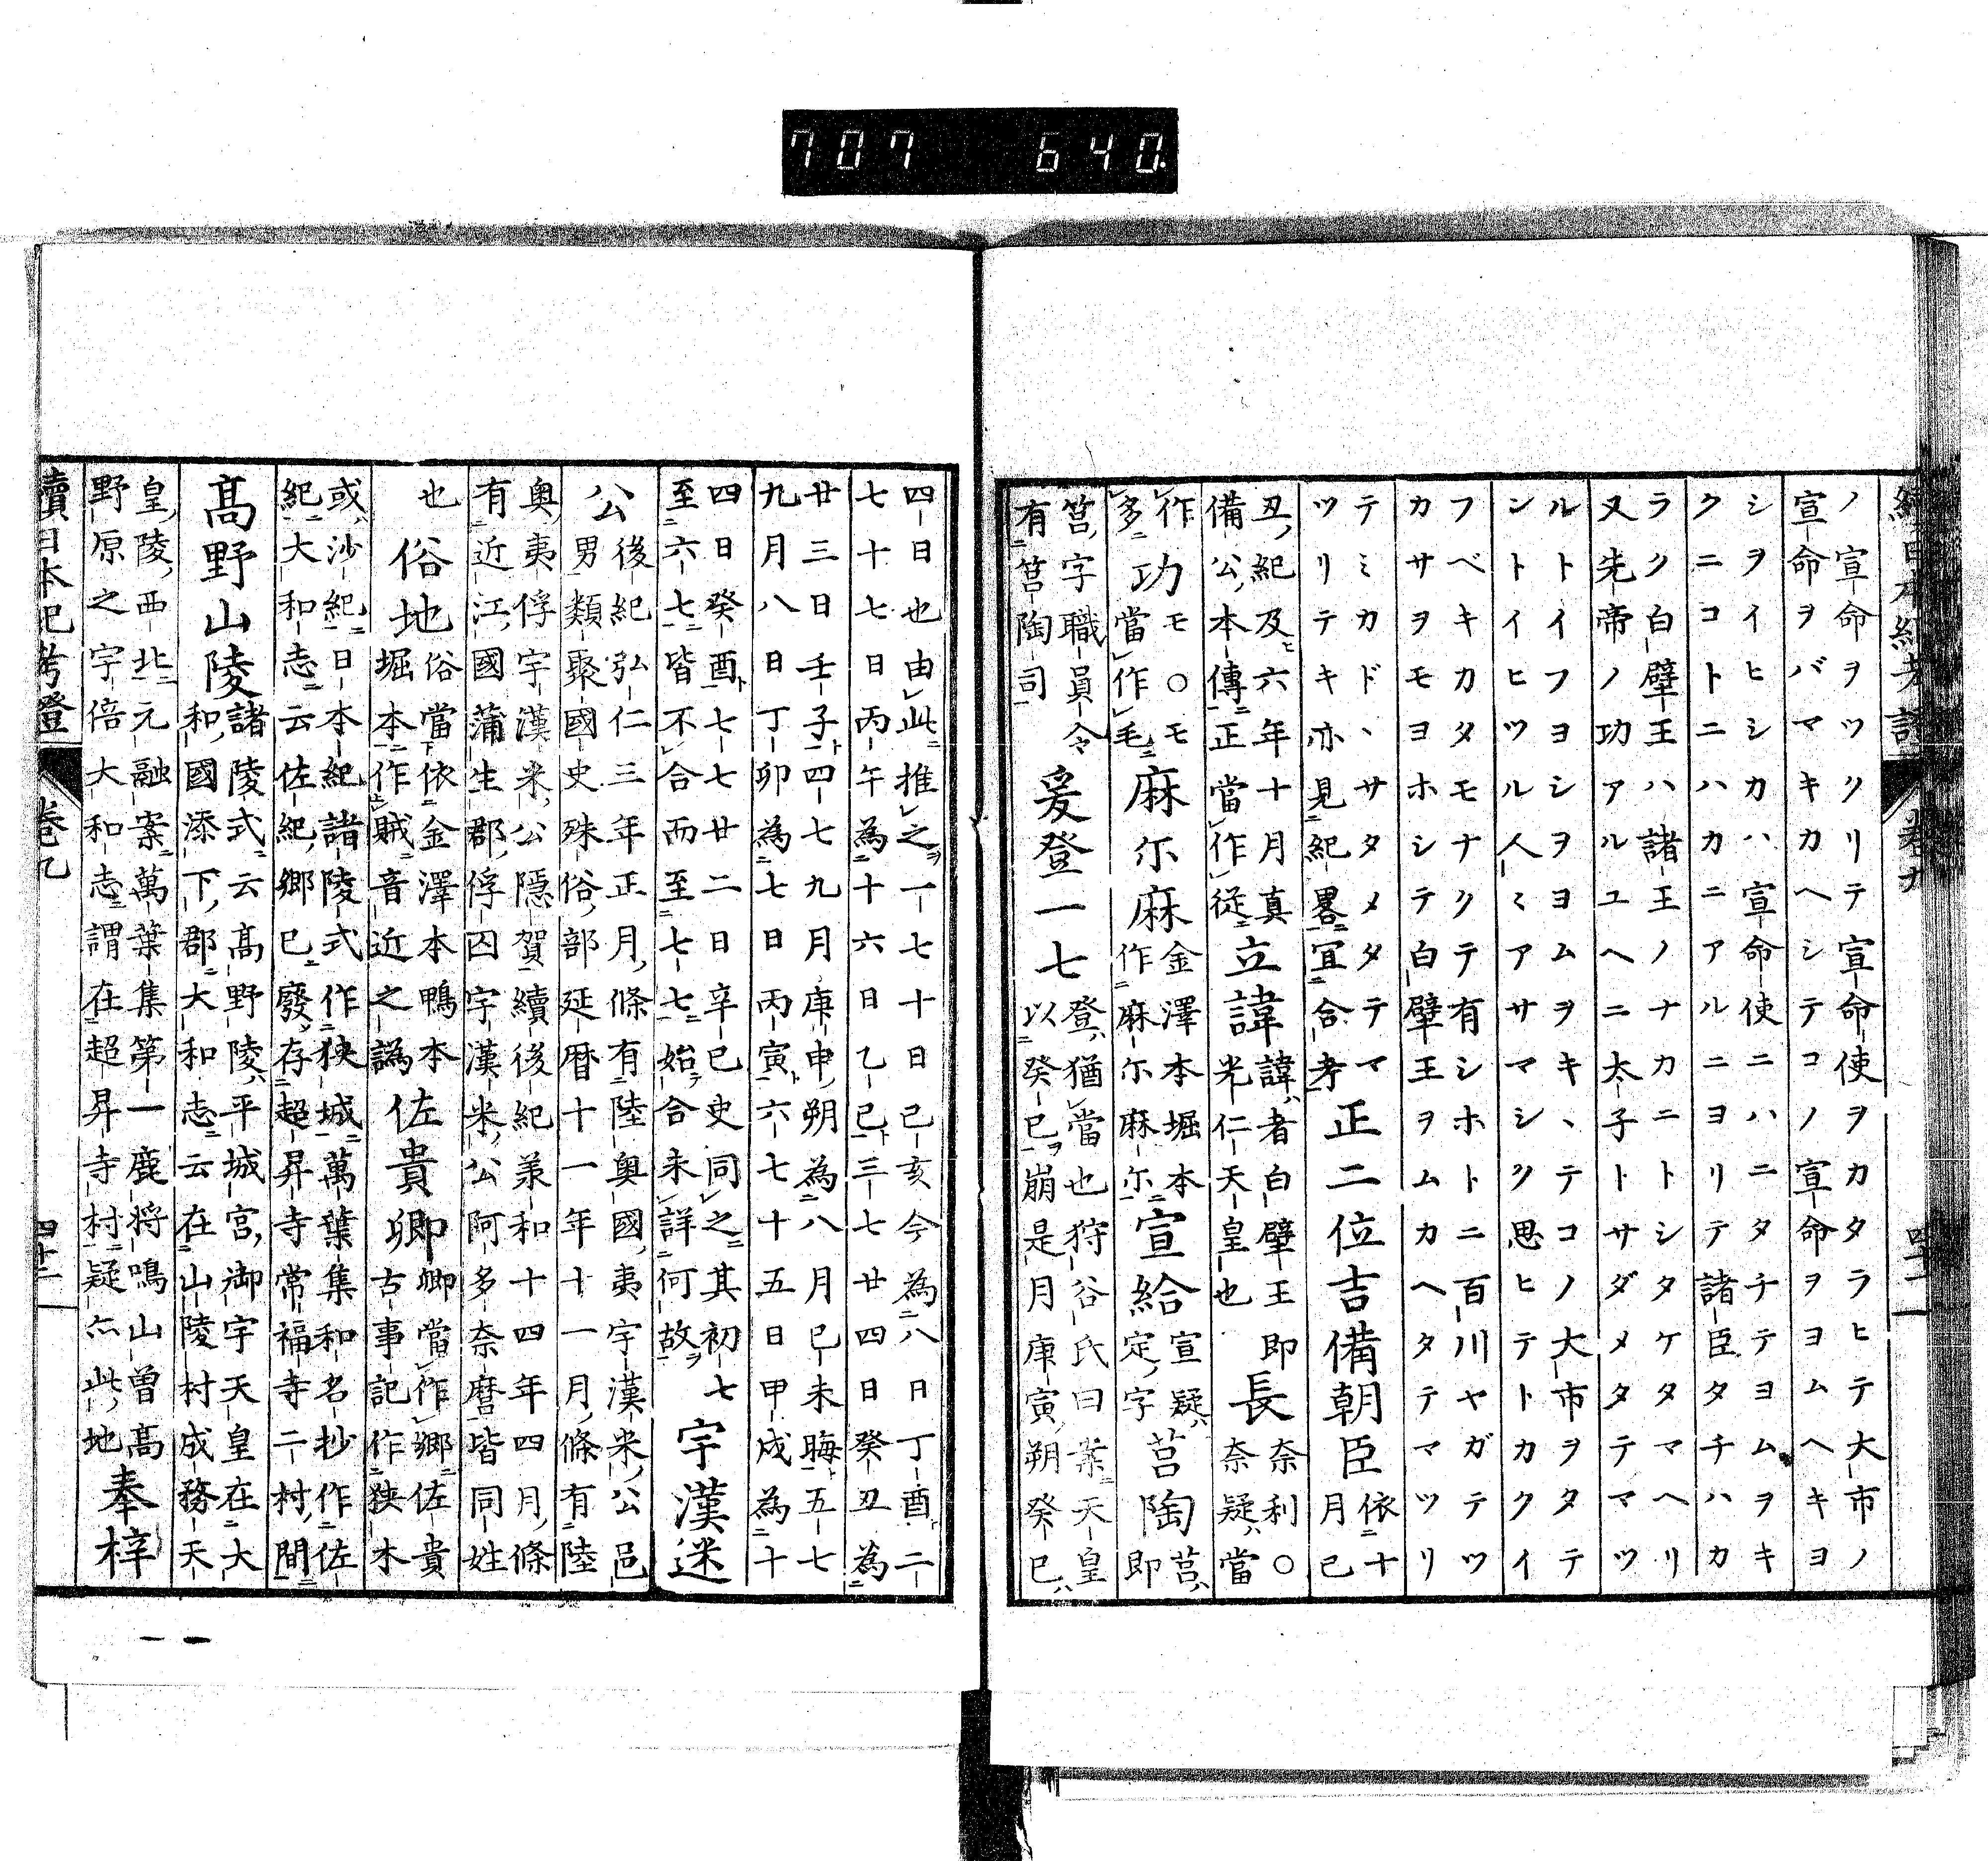 續日本紀考證 卷九 四十一
ノ宣命ヲツクリテ宣命使ヲカタラヒテ大市ノ
宣命ヲバマキカヘシテコノ宣命ヲヨムヘキヨ
シヲイヒシカハ宣命使ニハニタチテヨムヲキ
クニコトニハカニアルニヨリテ諸臣タチハカ
ラク白壁王ハ諸王ノナカニトシタケタマヘリ
又先帝ノ功アルユヘニ太子トサダメタテマツ
ルトイフヨシヲヨムヲキヽテコノ大市ヲタテ
ントイヒツル人ミアサマシク思ヒテトカクイ
フベキカタモナクテ有シホトニ百川ヤガテツ
カサヲモヨホシテ白壁王ヲムカヘタテマツリ
テミカドヽサタメタテマ
ツリテキ亦見紀畧宜合考
正二位吉備朝臣
依十
月己
丑紀及六年十月真
備公本傳正當作從
立諱
諱者白壁王即
光仁天皇也
長
奈利○
奈疑當
作
多
功
モ○モ
當作毛
麻尓麻
金澤本堀本
作麻尓麻尓
宣給
宣疑
定字
莒陶
莒
即
筥字職員令
有筥陶司
爰登一七
登猶當也狩谷氏曰案天皇
以癸巳崩是月庚寅朔癸巳
四日也由此推之一七十日己亥今為八日丁酉二
七十七日丙午為十六日乙巳三七廿四日癸丑為
廿三日壬子四七九月庚申朔為八月己未晦五七
九月八日丁卯為七日丙寅六七十五日甲戌為十
四日癸酉七七廿二日辛巳史同之其初七
至六七皆不合而至七七始合未詳何故
宇漢迷
公
後紀弘仁三年正月條有陸奥國夷宇漢米公邑
男類聚國史殊俗部延暦十一年十一月條有陸
奥夷俘宇漢米公隱賀續後紀羕和十四年四月條
有近江國蒲生郡俘囚宇漢米公阿多奈麿皆同姓
也
俗地
俗當依金澤本鴨本
堀本作賊音近之譌
佐貴卿
卿當作郷佐貴
古事記作狹木
或沙紀日本紀諸陵式作狹城萬葉集和名抄作佐
紀大和志云佐紀郷已廢存超昇寺常福寺二村間
髙野山陵
諸陵式云髙野陵平城宮御宇天皇在大
和國添下郡大和志云在山陵村成務天
皇陵西北元融案萬葉集第一鹿将鳴山曽髙
野原之字倍大和志謂在超昇寺村疑亦此地
奉梓
續日本紀考證 卷九 四十二
707 640.